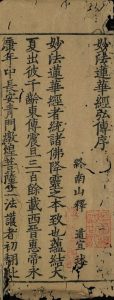 妙法蓮華經弘傳序
終南山釋　道宣　述
妙法蓮華經者統諸佛降靈之本致也蘊結大
夏出彼千齡東傳震旦三百餘載西晉惠帝永
康年中長安青門燉煌菩薩竺法護者初翻此